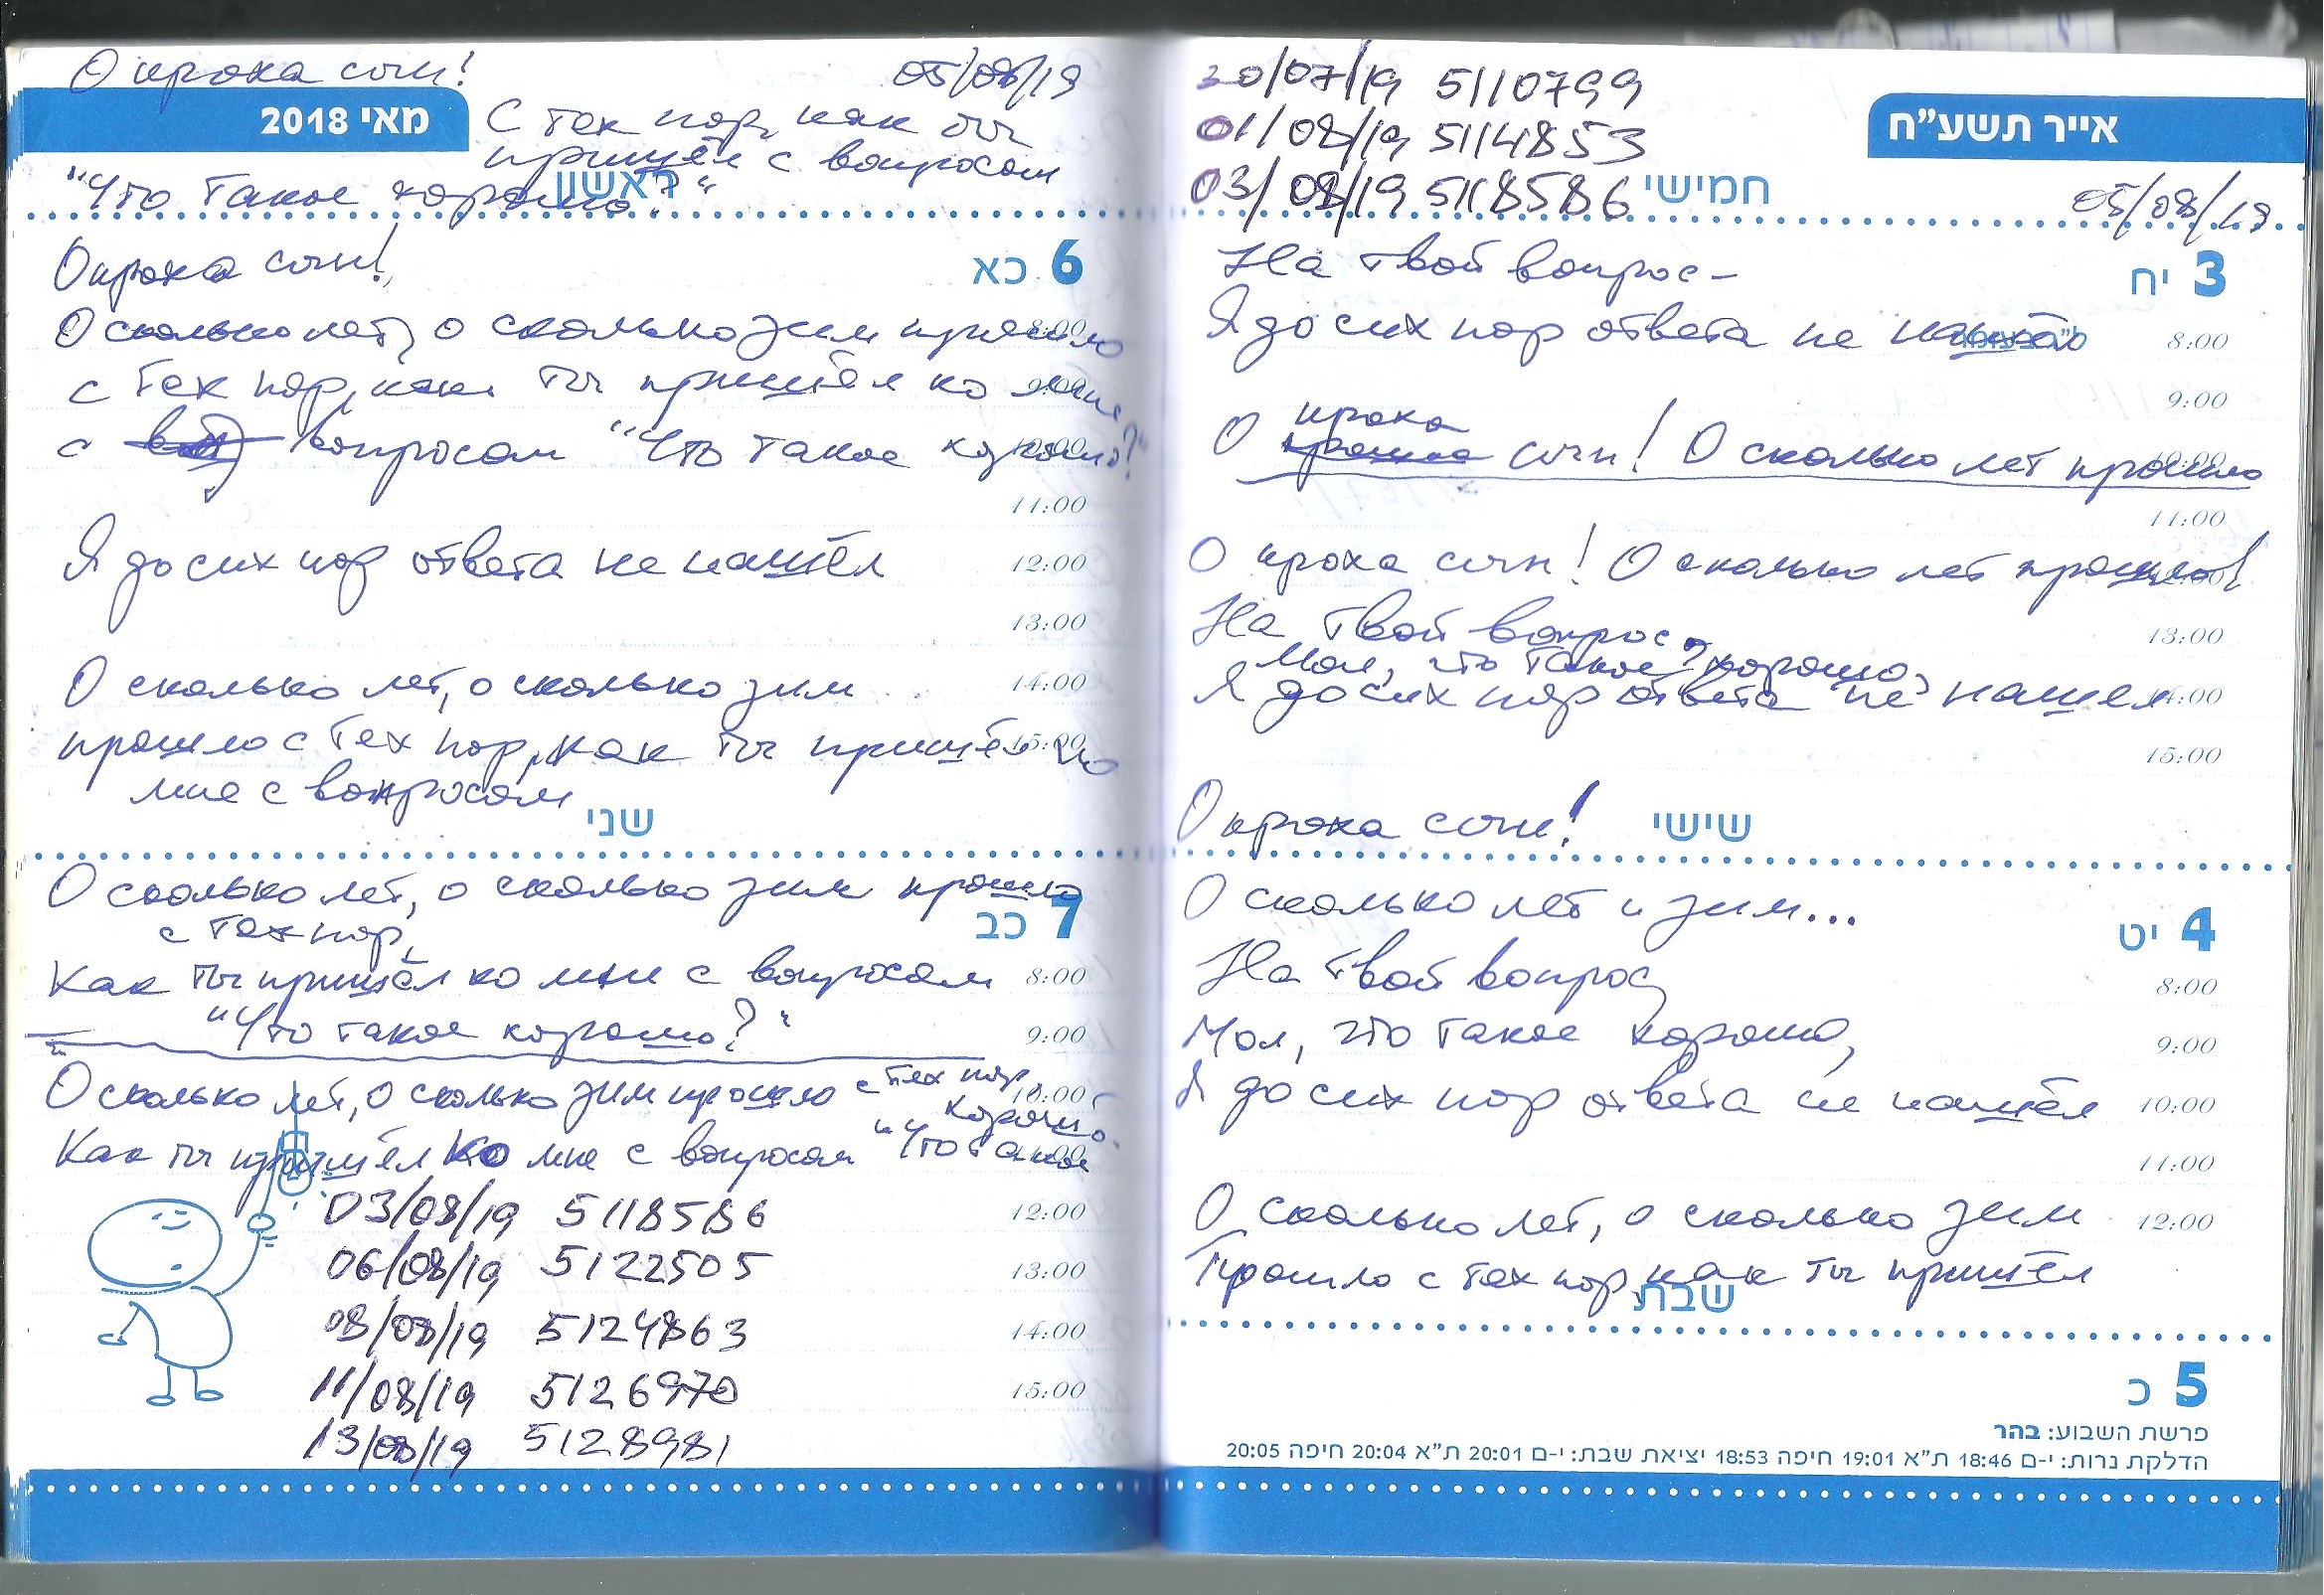 О кроха сын! 05/08/19
מאי 2018
С тех пор, как ты
пришёл с вопросом
"Что такое хорошо?"
ראשון
О кроха сын!
6 כא
О сколько лет, о сколько зим прошло
8:00
с тех пор, как ты пришёл ко мне
9:00
с вопросом "Что такое хорошо?"
10:00
11:00
Я до сих пор ответа не нашёл
12:00
13:00
О сколько лет, о сколько зим
14:00
прошло с тех пор, как ты пришёл ко
15:00
мне с вопросом
שני
О сколько лет, о сколько зим прошло
с тех пор,
7 כב
Как ты пришёл ко мне с вопросом
8:00
"Что такое хорошо?"
9:00
О сколько лет, о сколько зим прошло с тех пор
10:00
хорошо.
Как ты пришёл ко мне с вопросом "Что такое
11:00
03/08/19 5118586
12:00
06/08/19 5122505
13:00
08/08/19 5124863
14:00
11/08/19 5126970
15:00
13/08/19 5128981
30/07/19 5110799
אייר תשע"ח
01/08/19 5114853
03/08/19 5118586
חמישי
05/08/19
На твой вопрос –
3 יח
Я до сих пор ответа не нашёл
8:00
9:00
кроха
О сын! О сколько лет прошло
10:00
11:00
О кроха сын! О сколько лет прошло!
12:00
На твой вопрос,
13:00
Мол, что такое хорошо,
Я до сих пор ответа не нашел
14:00
15:00
О кроха сын!
שישי
О сколько лет и зим...
4 יט
На твой вопрос,
8:00
Мол, что такое хорошо,
9:00
Я до сих пор ответа не нашёл
10:00
11:00
О сколько лет, о сколько зим
12:00
Прошло с тех пор, как ты пришёл
שבת
5 כ
פרשת השבוע: בהר
הדלקת נרות: י-ם 18:46 ת"א 19:01 חיפה 18:53 יציאת שבת: י-ם 20:01 ת"א 20:04 חיפה 20:05